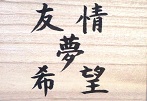 友情
夢
希望